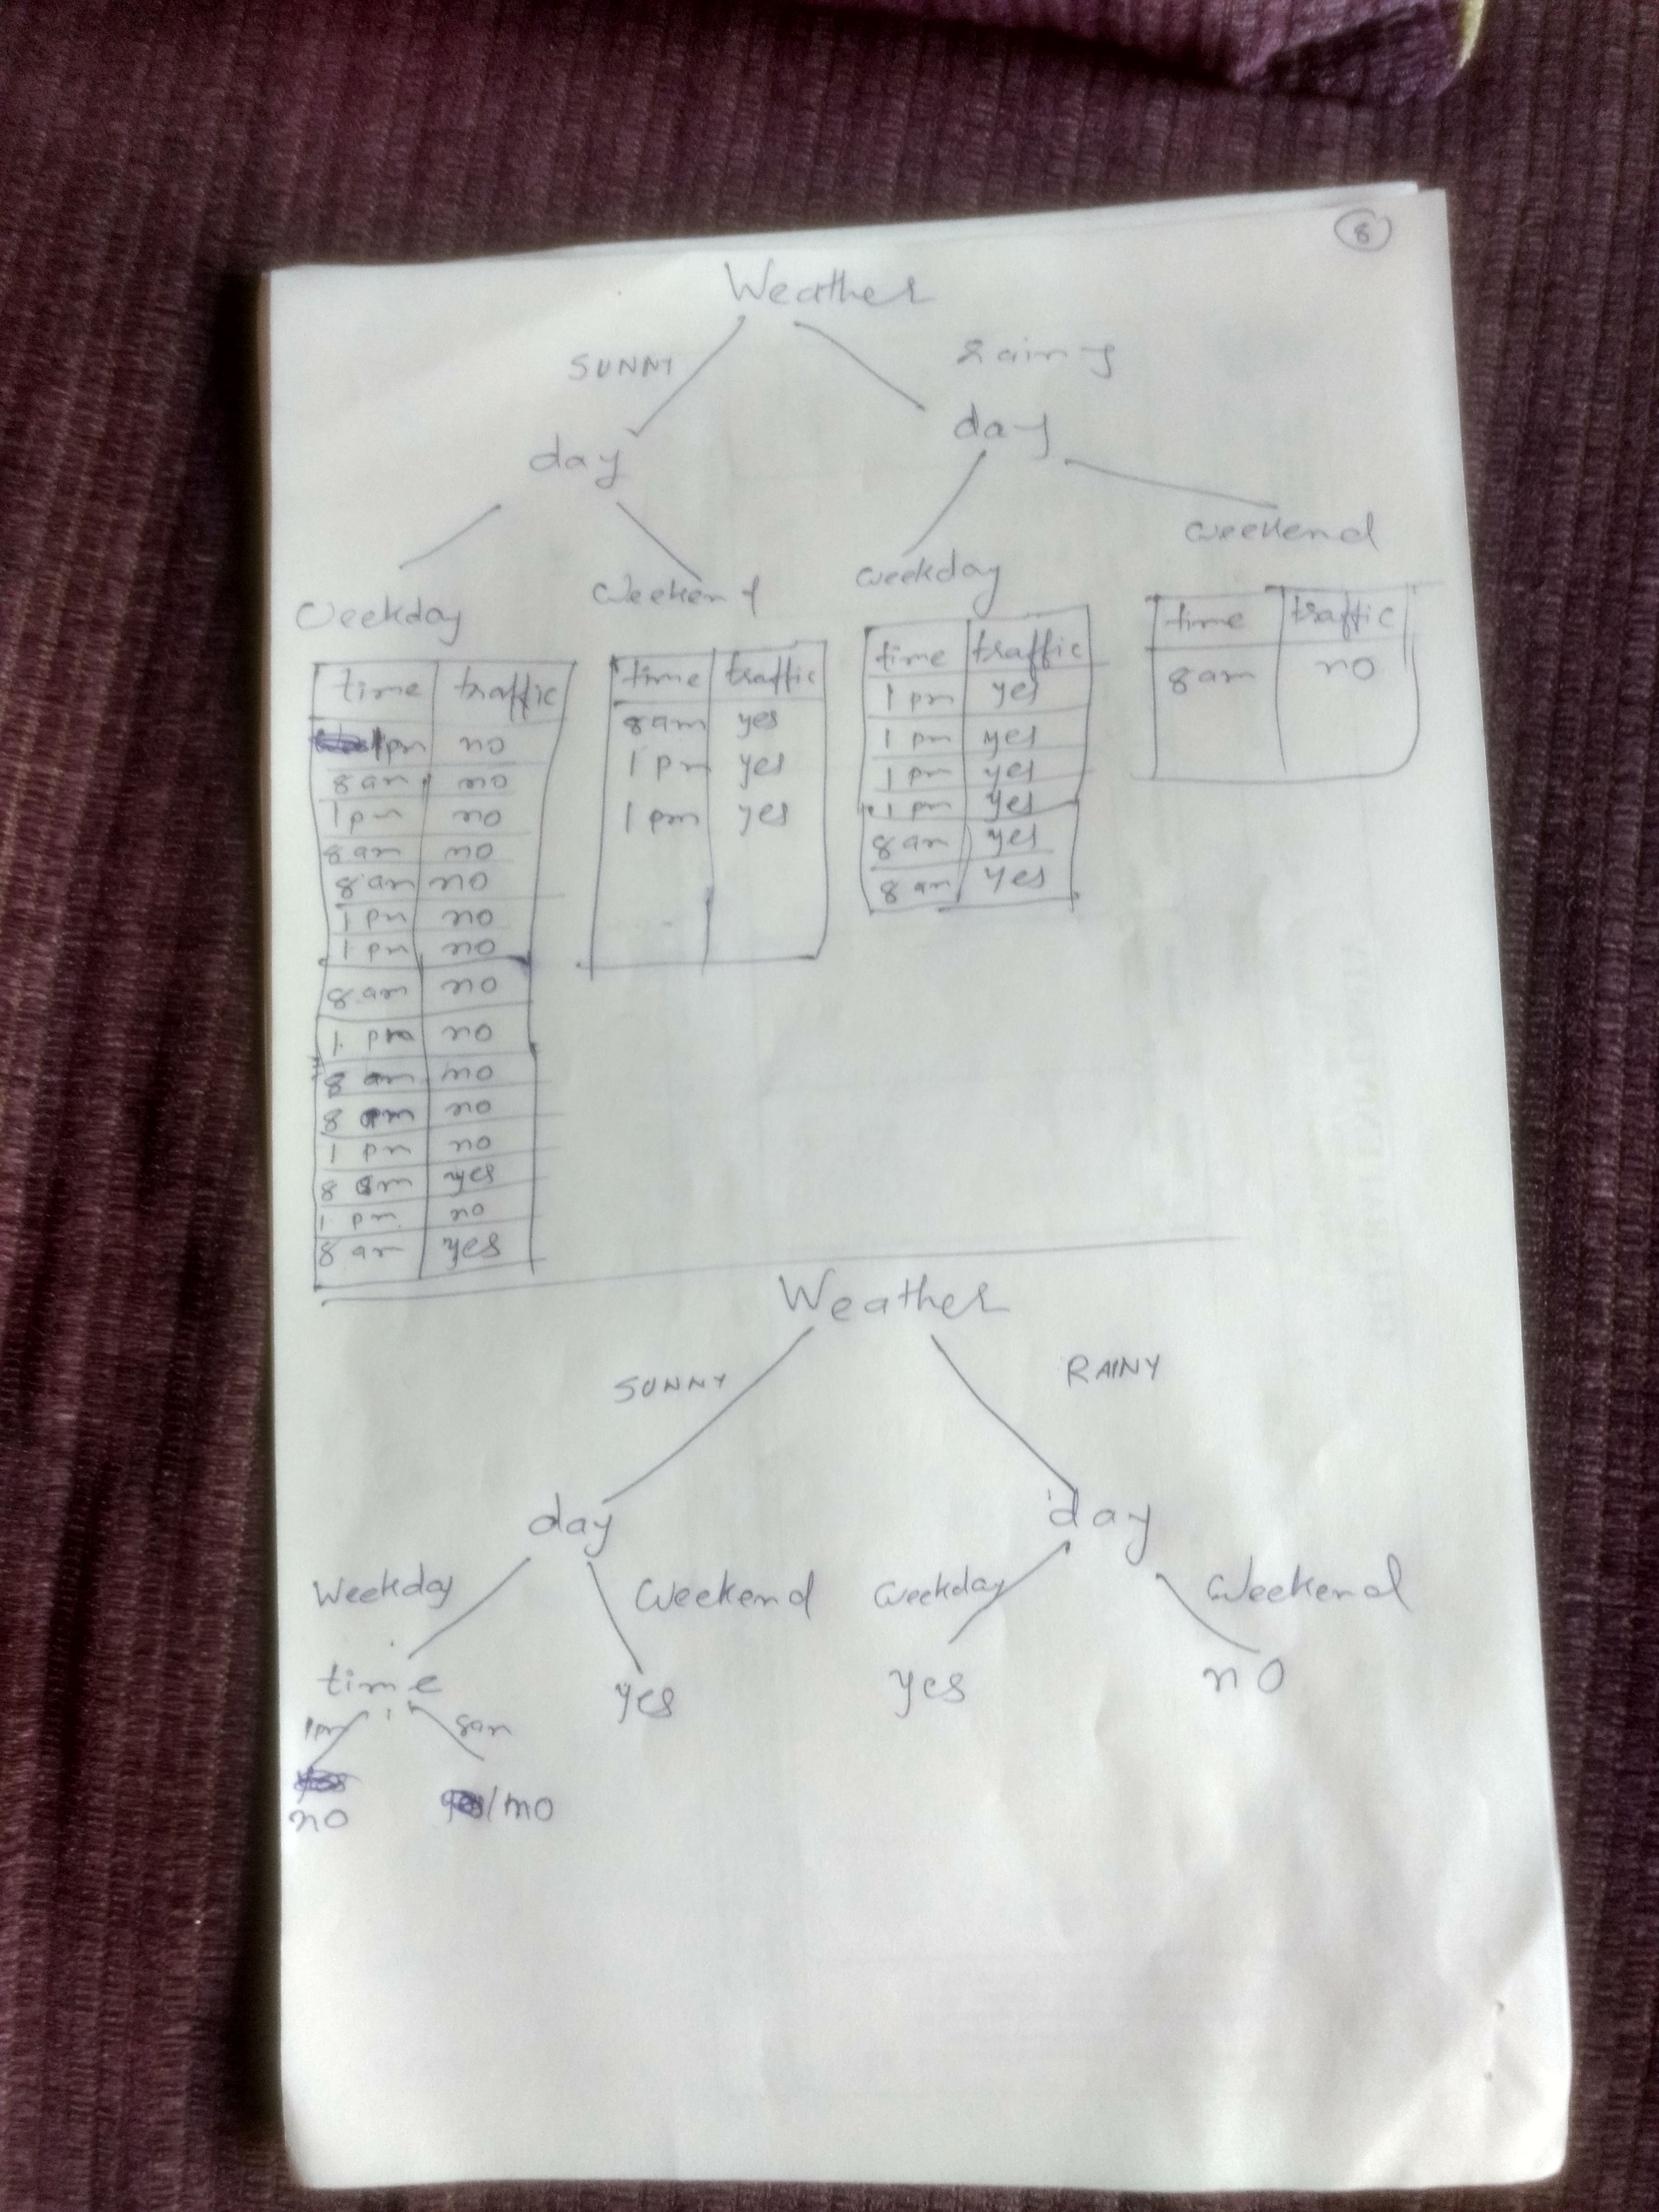 8
Weather
SUNNY
rainy
day
day
Weekday
weekend
weekday
weekend
time traffic
1pm no
8 am no
1pm no
8 am no
8 am no
1 pm no
1 pm no
8 am no
1 pm no
8 am no
8 am no
1 pm no
8 am yes
1 pm no
8 am yes
time traffic
8am yes
1 pm yes
1 pm yes
time traffic
1 pm yes
1 pm yes
1 pm yes
1 pm yes
8 am yes
8 am yes
time traffic
8 am no
Weather
SUNNY
RAINY
day
day
Weekday
Weekend
Weekday
Weekend
time
yes
yes
no
1pm
8am
no
/no